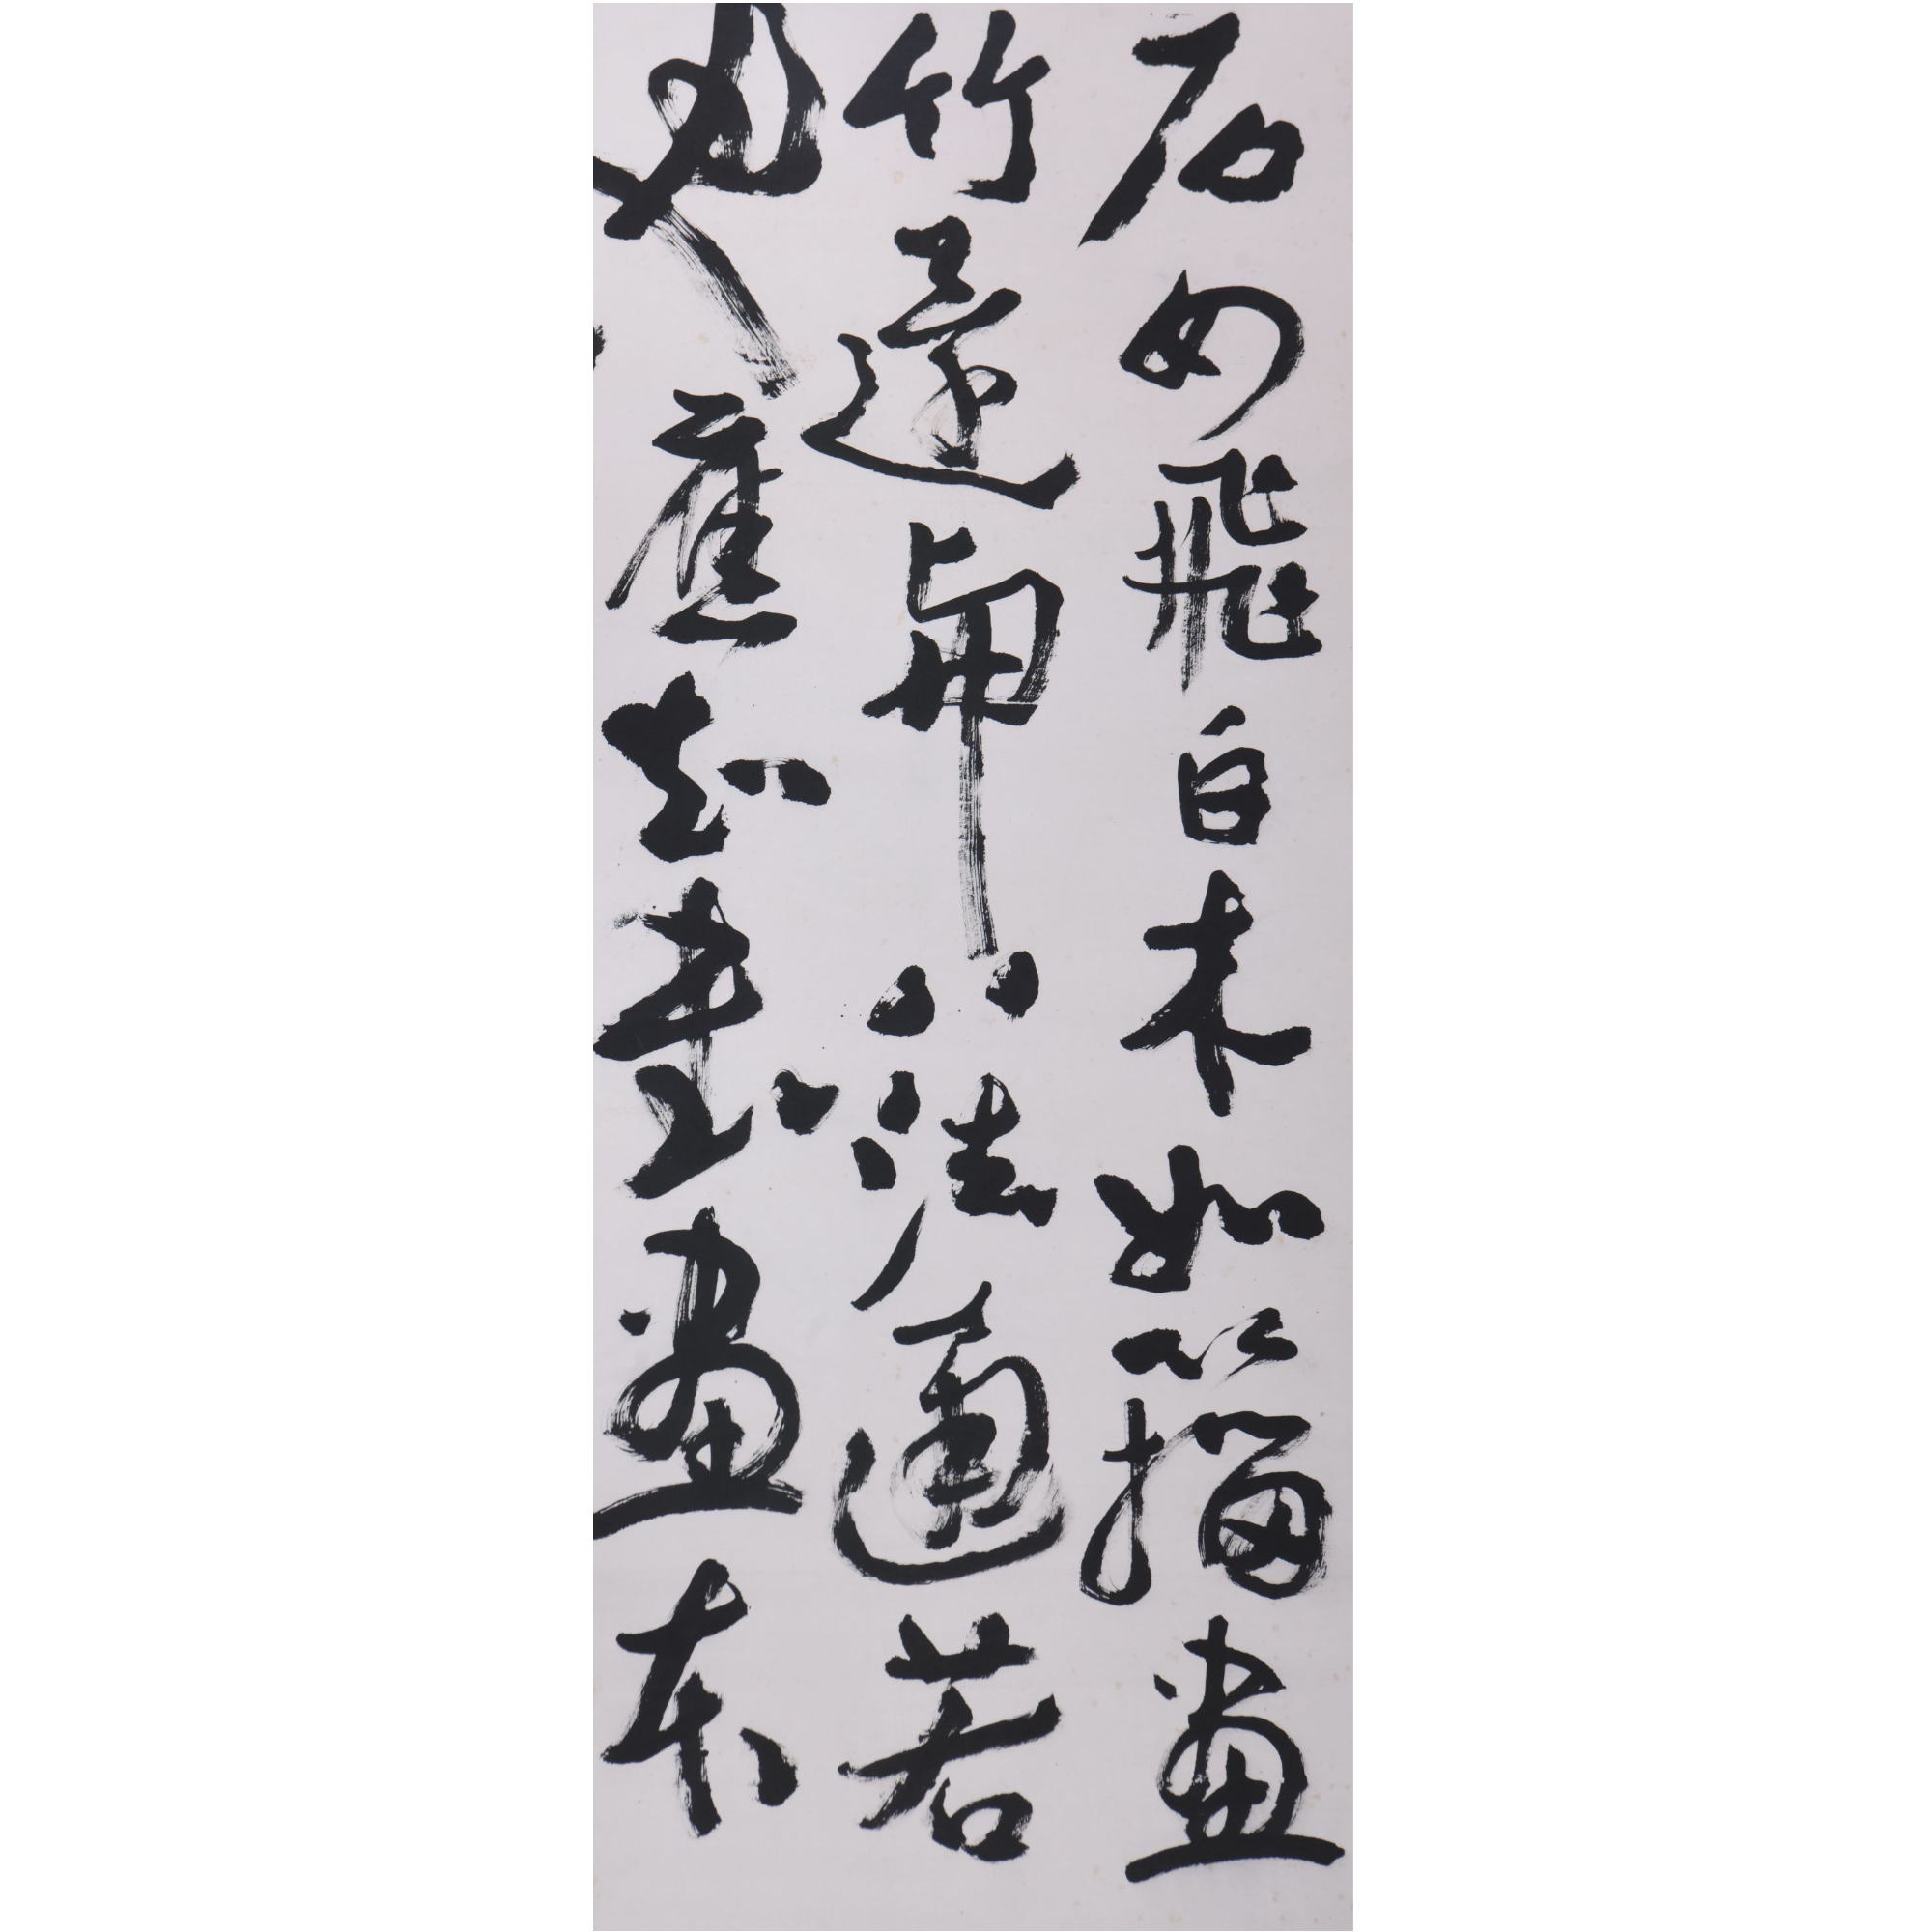 石如飛白木如籀畫
竹還八法通若
應知書畫本